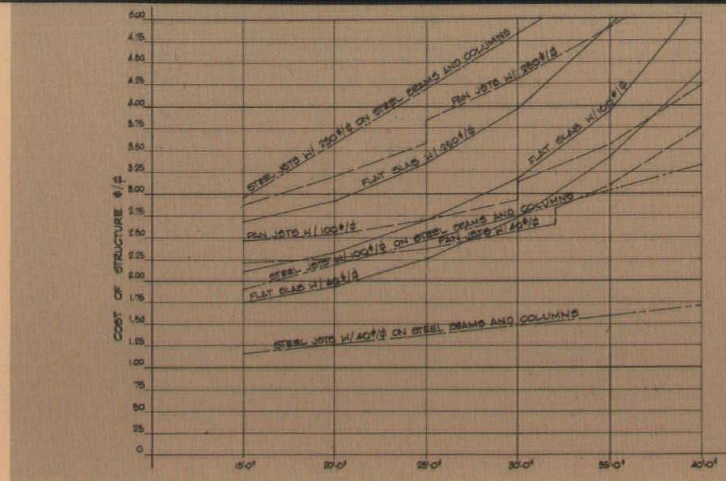 5.00
4.75
4.50
4.25
4.00
3.75
3.50
3.25
3.00
2.75
2.50
2.25
2.00
1.75
1.50
1.25
1.00
.75
.50
.25
0
COST OF STRUCTURE $/#
STEEL JSTS W/ 250#/# ON STEEL BEAMS AND COLUMNS
PAN JSTS W/ 250#/#
FLAT SLAB W/ 250#/#
FLAT SLAB W/ 100#/#
PAN JSTS W/ 100#/#
STEEL JSTS W/ 100#/# ON STEEL BEAMS AND COLUMNS
PAN JSTS W/ 40#/#
FLAT SLAB W/ 40#/#
STEEL JSTS W/ 40#/# ON STEEL BEAMS AND COLUMNS
15'-0" 20'-0" 25'-0" 30'-0" 35'-0" 40'-0"